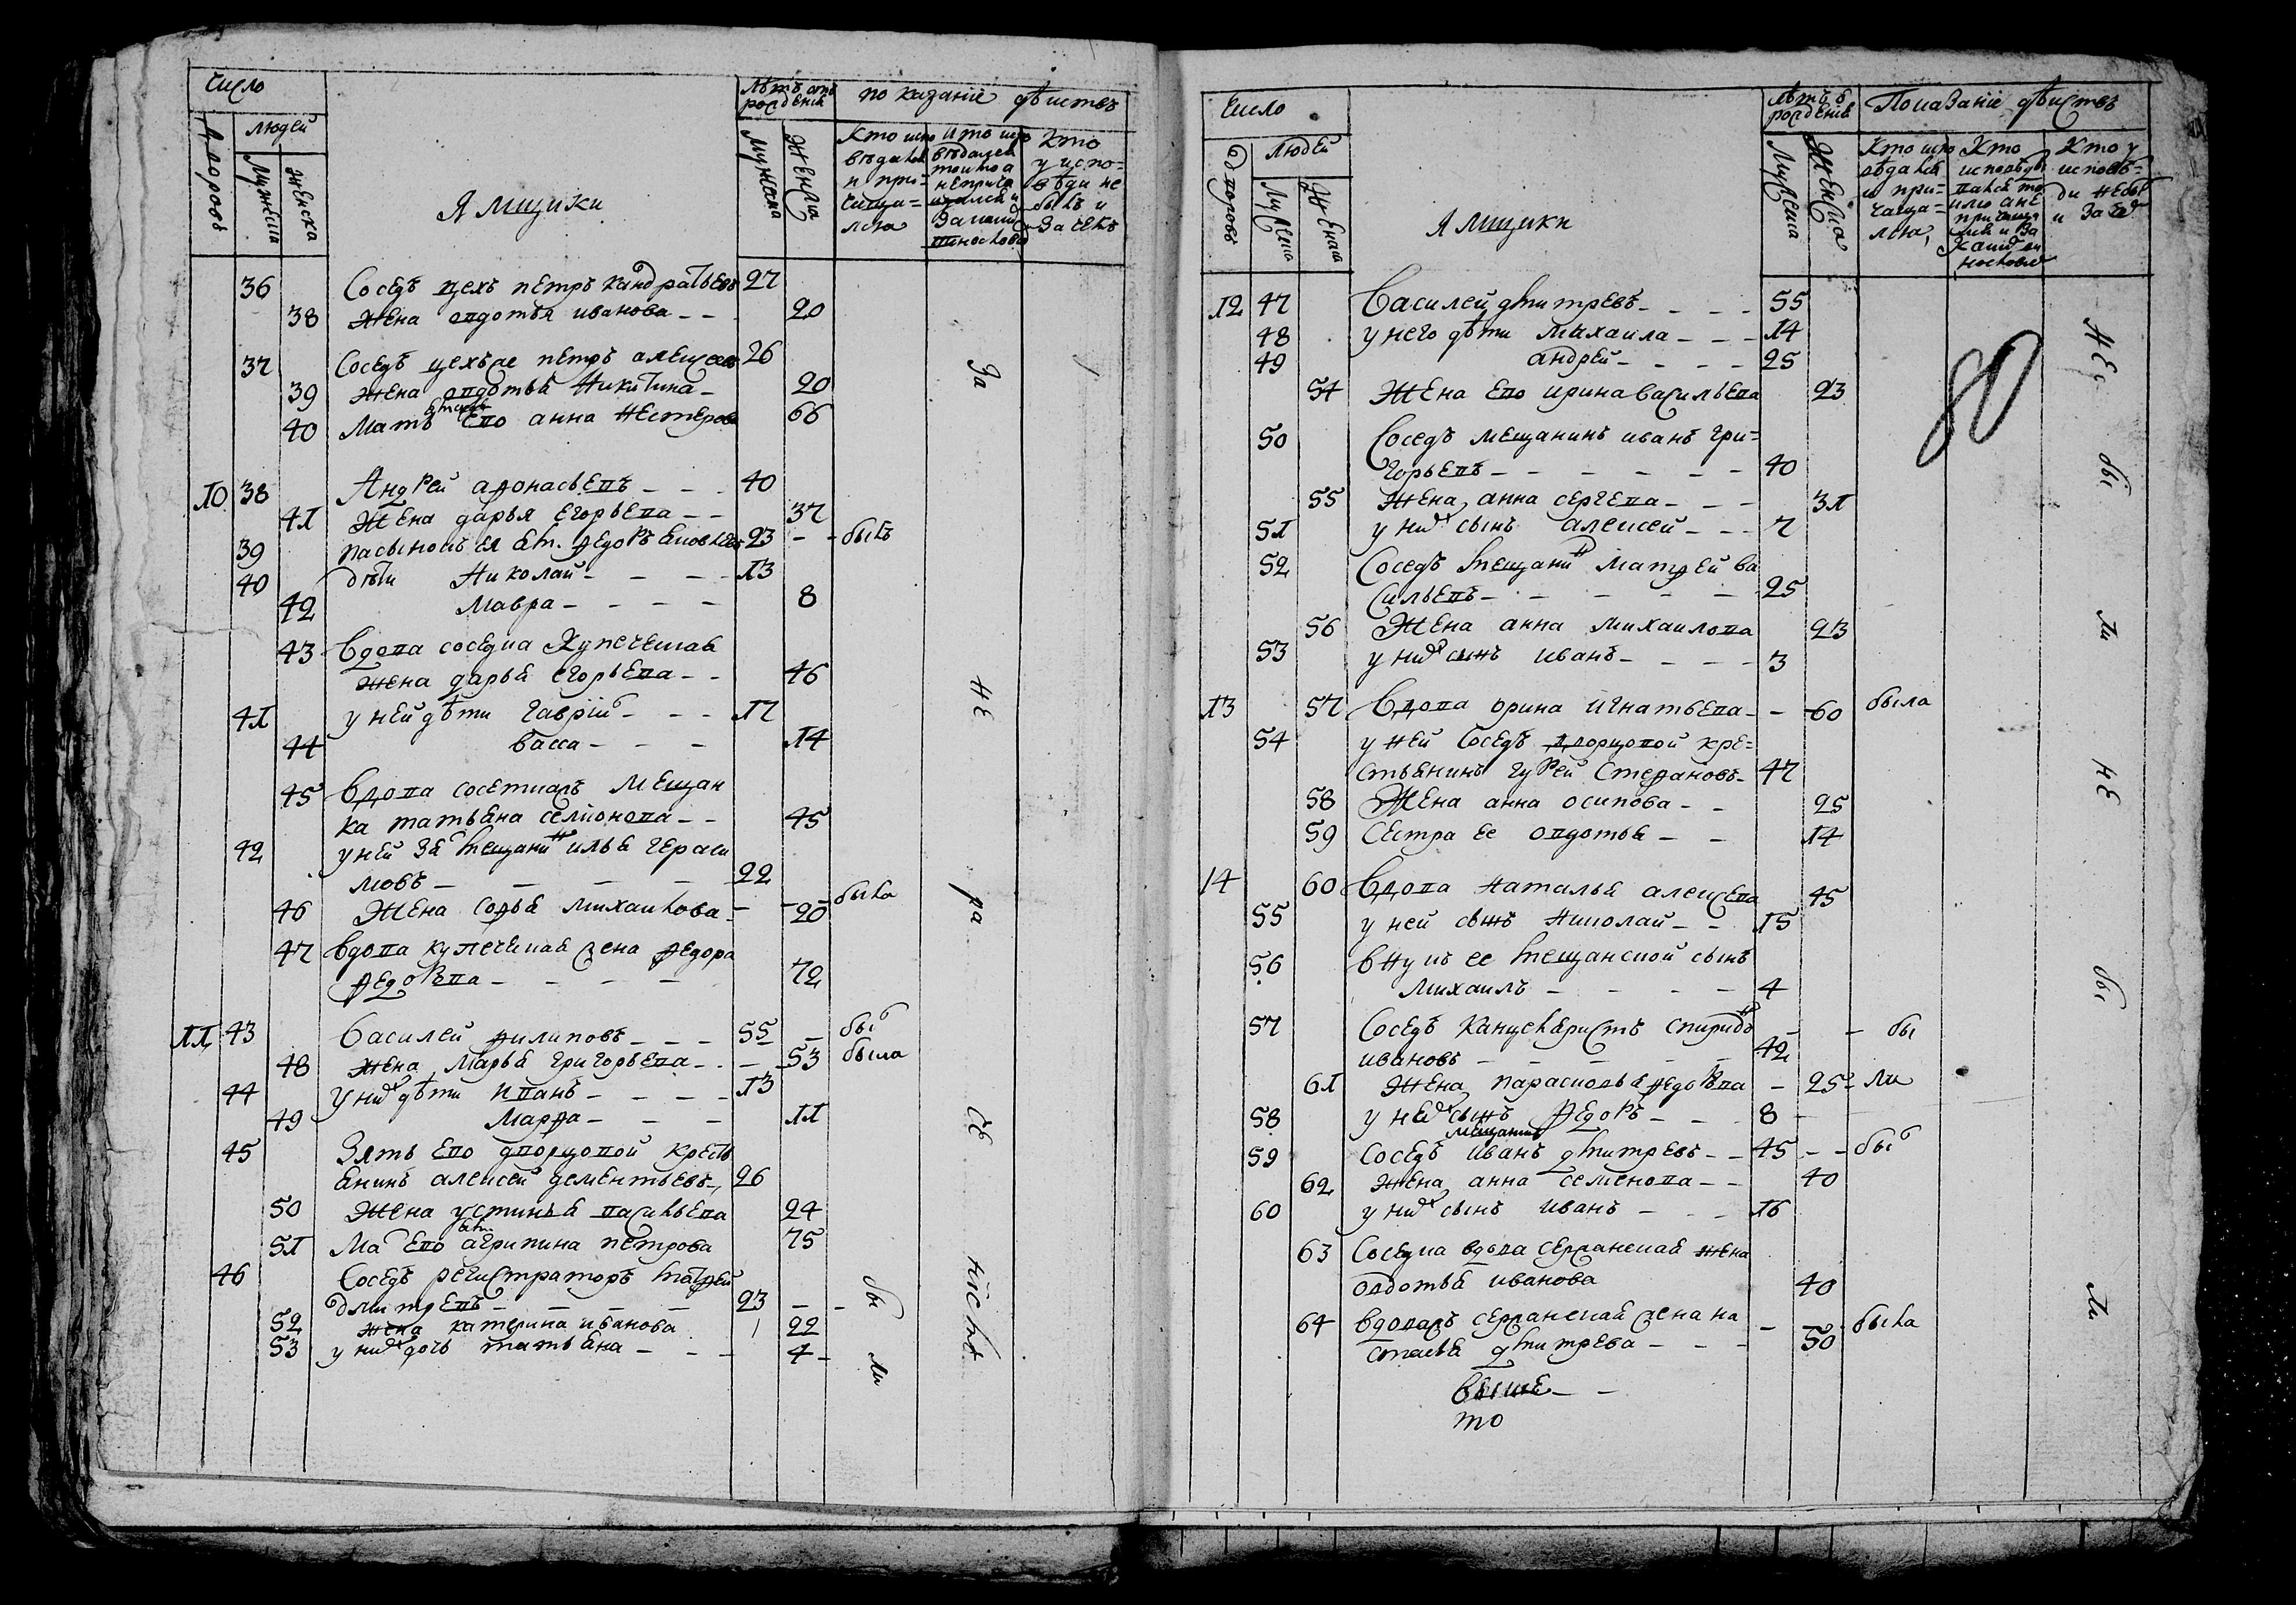 число
Дворовъ
людей
мужеска
женска
Ямщики
лѣтъ отъ рождения
мужска
женска
по казанiе дѣиствъ
Кто испо
вѣдалсѧ
и при-
чаща-
лсѧ
Кто
у испо-
вѣди не
былъ и
за чемъ
36 Соседъ цехъ петръ кандратьевъ 27
38 жена овдотьѧ иванова 20
37 Соседъ цехъ петръ алексеевъ 26
39 жена овдотьѧ Никитина 20
40 Мать ево анна Нестерова 66
10 38 Андрей аѳонасьевъ 40
41 Жена дарья егорьева 37
39 пасынокъ ея Ѳедоръ 23 былъ
40 дѣти Николай 13
42 Мавра 8
43 Вдова соседка купеческаѧ
жена дарьѧ егорьева 46
41 у ней дѣти гаврiи 17
44 васса 14
45 Вдова соседка Мещан
ка татьѧна семионова 45
42 у ней зѧ мещани илья гераси
мовъ 22
46 Жена соѳьѧ михаилова 20 была
47 вдова купеческаѧ жена Ѳедора
Ѳедорова 72
11 43 Василей Ѳилиповъ 55 бы
48 жена Марьѧ григорьева 53 была
44 У них дѣти иванъ 13
49 Марѳа 11
45 Зять ево дворцовой кресть
ѧнинъ алексеи дементьевъ 26
50 Жена устиньѧ васильева 24
51 Ма ево агрипина петрова 75
46 Соседъ регистраторъ матѳей
дмитревъ 23
52 жена катерина иванова 22
53 у них дочь татьѧна 4
За
не
ра
се
бы
ли
число
Дворовъ
людей
мужеска
женска
Ямщики
лѣтъ рождениѧ
мужеска
женска
Показанiе дѣиствъ
Кто испо
вѣдалсѧ
и при-
чаща-
лсѧ
Кто
Кто у
исповѣ-
ди не бы
и за че
12 47 Василей дмитревъ 55
48 у него дѣти михаила 14
49 андрей 25
54 Жена ево иринавасильева 23
50 Соседъ мещанинъ иванъ гри-
горьевъ 40
55 Жена анна сергева 31
51 у них сынъ алексей 7
52 Соседъ мещани матѳей ва
сильевъ 25
56 Жена анна михаилова 23
53 у них сынъ иванъ 3
13 57 Вдова орина игнатьева 60 была
54 у ней соседъ дворцовой кре-
стьѧнинъ гурей стеѳановъ 47
58 Жена анна осипова 25
59 Сестра ее овдотьѧ 14
14 60 Вдова натальѧ алексева 45
55 у ней сынъ николай 15
56 внукъ ее мещанской сынъ
михаилъ 4
57 Соседъ канцелѧристъ спиридо
ивановъ 42 бы
61 Жена парасковьѧ Ѳедорова 25 ли
58 у них сынъ Ѳедоръ 8
мещанинъ
59 Соседъ иванъ дмитревъ 45 бы
62 жена анна семенова 40
60 у них сынъ иванъ 16
63 Соседка вдова сержанскаѧ жена
овдотьѧ иванова 40
64 вдова сержанскаѧ жена на
стасьѧ дмитрева 50 была
не
бы
ли
не
бы
ли
80